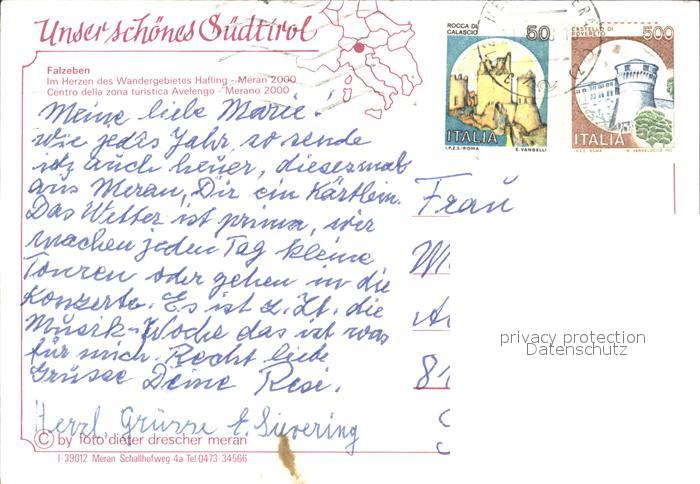 Unser schönes Südtirol
Falzeben
Im Herzen des Wandergebietes Hafling - Meran 2000
Centro della zona turistica Avelengo - Merano 2000
ROCCA DI
CALASCIO
50
ITALIA
I.P.Z.S.-ROMA E. VANGELLI
CASTELLO DI
ROVERETO
500
ITALIA
I.P.Z.S. ROMA
Meine liebe Marie!
Wie jedes Jahr, so sende
ich auch heuer, diesesmal
aus Meran, Dir ein Kärtlein.
Das Wetter ist prima, wir
machen jeden Tag kleine
Touren oder gehen in die
Konzerte. Es ist z. Zt. die
Musik-Woche das ist was
für mich. Recht liebe
Grüsse Deine Resi.
Herzl. Grüsse E. Sievering
Frau
81
privacy protection
Datenschutz
© by foto dieter drescher meran
I-39012 Meran Schallhofweg 4a Tel. 0473-34566